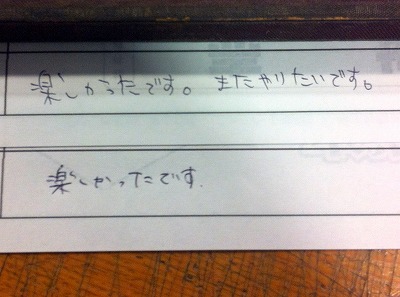 楽しかったです。 またやりたいです。
楽しかったです.